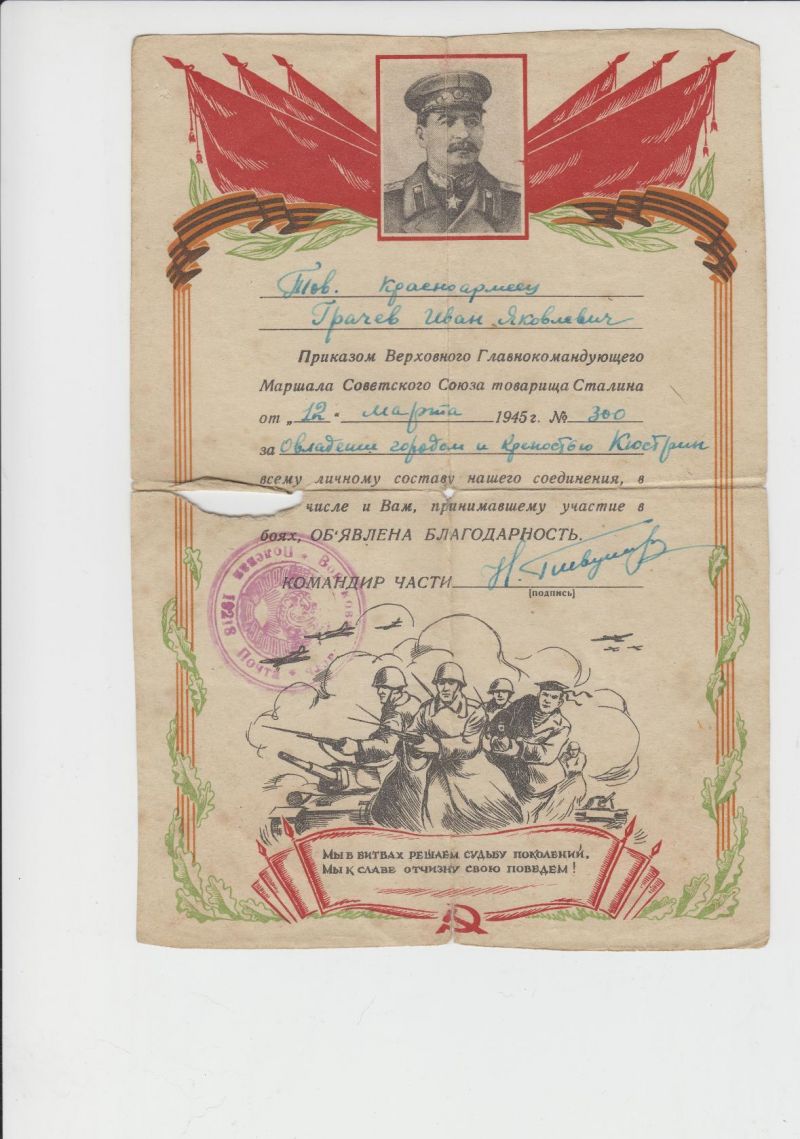 Тов. Красноармеец
Грачев Иван Яковлевич
Приказом Верховного Главнокомандующего
Маршала Советского Союза товарища Сталина
от „12“ марта 1945 г. № 300
за Овладение городом и крепостью Кюстрин
всему личному составу нашего соединения, в
числе и Вам, принимавшему участие в
боях, ОБ'ЯВЛЕНА БЛАГОДАРНОСТЬ.
КОМАНДИР ЧАСТИ
[подпись]
Полевая Почта 19218
МЫ В БИТВАХ РЕШАЕМ СУДЬБУ ПОКОЛЕНИЙ,
МЫ К СЛАВЕ ОТЧИЗНУ СВОЮ ПОВЕДЕМ!